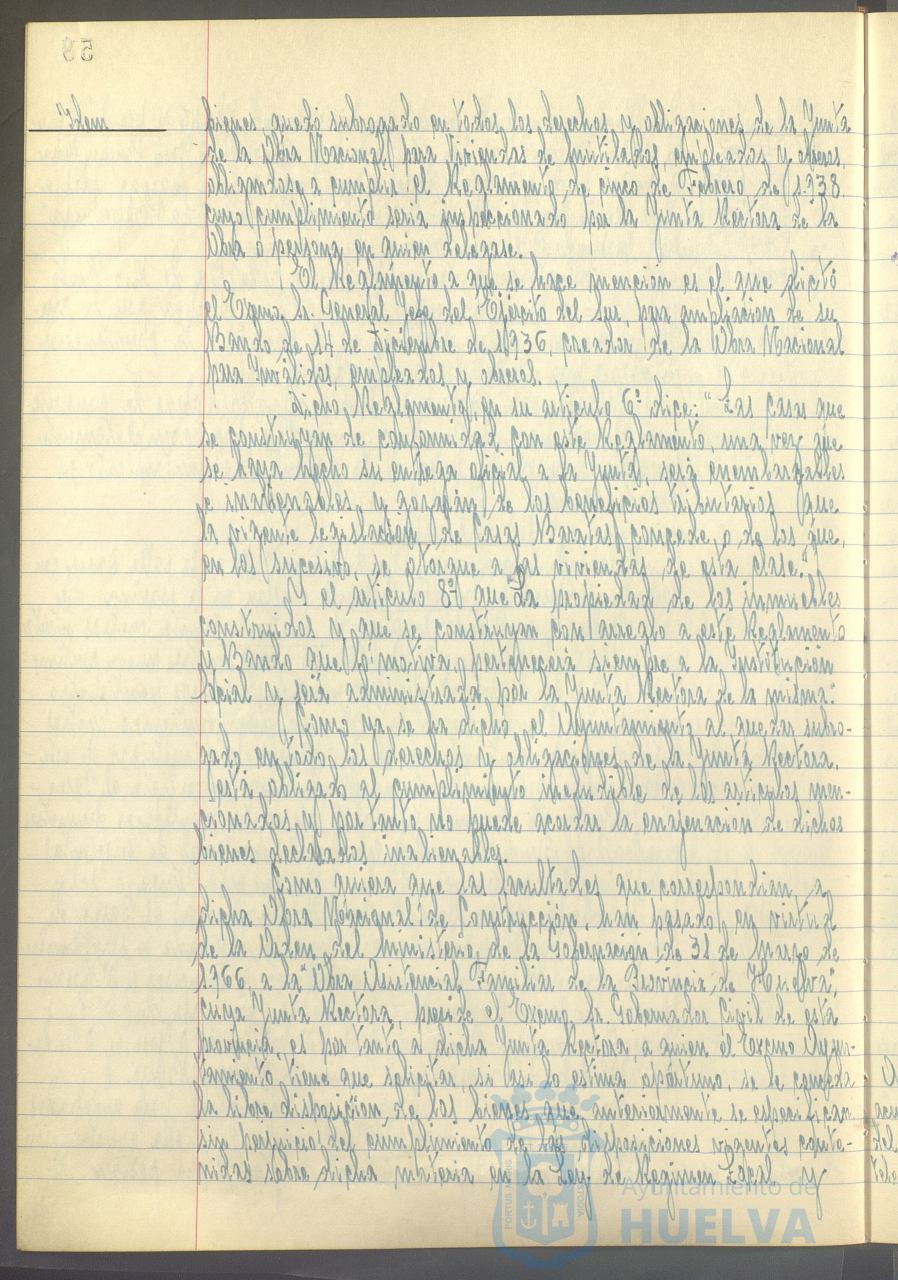 Idem
bienes, quedó subrogado en todos los derechos y obligaciones de la Junta
de la Obra Nacional para Viviendas de mutilados, empleados y obreros,
obligándose a cumplir el Reglamento de cinco de Febrero de 1.938.
cuyo cumplimiento sería inspeccionado por la Junta Rectora de la
Obra o persona en quien delegase.
El Reglamento a que se hace mención es el que dictó
el Excmo. Sr. General Jefe del Ejército del Sur, para ampliación de su
Bando de 14 de Diciembre de 1.936, creador de la Obra Nacional
para Inválidos, empleados y obreros.
Dicho Reglamento, en su artículo 6º dice: "Las casas que
se construyan de conformidad con este Reglamento, una vez que
se haya hecho su entrega oficial a la Junta, será inembargables
e inalienables y gozarán de los beneficios tributarios que
la vigente legislación de Casas Baratas concede o de los que,
en los sucesivo, se otorgue a las viviendas de esta clase."
Y el artículo 8º que "La propiedad de los inmuebles
construidos y que se construyan con arreglo a este Reglamento
y Bando que lo motiva, pertenecerá siempre a la Institución
Social y será administrada por la Junta Rectora de la misma."
Como ya se ha dicho, el Ayuntamiento al quedar subro-
gado en todo los derechos y obligaciones de la Junta Rectora,
está obligado al cumplimiento ineludible de los artículos men-
cionados, y por tanto no puede acordar la enajenación de dichos
bienes declarados inalienables.
Como quiera que las facultades que correspondian a
dicha Obra Nacional de Construcción, han pasado en virtud
de la Orden del Ministerio de la Gobernación de 31 de Marzo de
1.966, a la "Obra Asistencial Familiar de la Provincia de Huelva",
cuya Junta Rectora, preside el Excmo. Sr. Gobernador Civil de esta
provincia, es por tanto a dicha Junta Rectora, a quien el Excmo Ayun-
tamiento, tiene que solicitar, si asi lo estima opórtuno, se le conceda
la libre disposición de los bienes que anteriormente se especifican
sin perjuicio del cumplimiento de las disposiciones vigentes conte-
nidas sobre dicha materia en la Ley de Regimen Local y
Ayuntamiento de
HUELVA